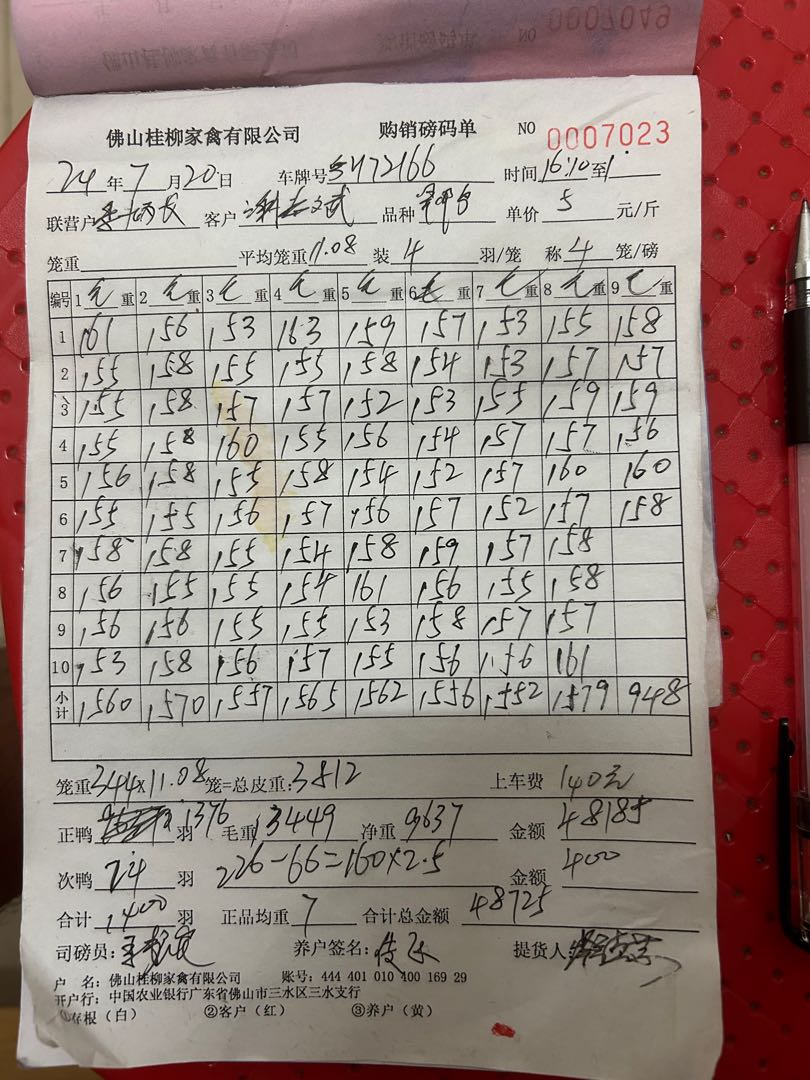 佛山桂柳家禽有限公司 购销磅码单 NO 0007023
24年7月20日 车牌号 5472166 时间16:10至
联营户 客户 品种 单价 5 元/斤
笼重 平均笼重11.08 装4羽/笼 称4笼/磅
编号 1毛重 2毛重 3毛重 4毛重 5毛重 6毛重 7毛重 8毛重 9毛重
1 161 156 153 163 159 157 153 155 158
2 155 158 155 155 158 154 153 157 157
3 155 158 157 157 152 153 155 159 159
4 155 158 160 155 156 154 157 157 156
5 156 158 155 158 154 152 157 160 160
6 155 155 156 157 156 157 152 157 158
7 158 158 155 154 158 159 157 158
8 156 155 155 154 161 156 155 158
9 156 156 155 155 153 158 157 157
10 153 158 156 157 155 156 156 161
小计 1560 1570 1557 1565 1562 1556 1552 1579 948
笼重344×11.08笼=总皮重:3812 上车费 140元
正鸭 1376 羽 毛重13449 净重9637 金额48185
次鸭 24 羽 226-66=160×2.5 金额400
合计1400羽 正品均重7 合计总金额48725
司磅员: 养户签名: 提货人:
户 名:佛山桂柳家禽有限公司 账号:444 401 010 400 169 29
开户行:中国农业银行广东省佛山市三水区三水支行
①存根(白) ②客户(红) ③养户(黄)